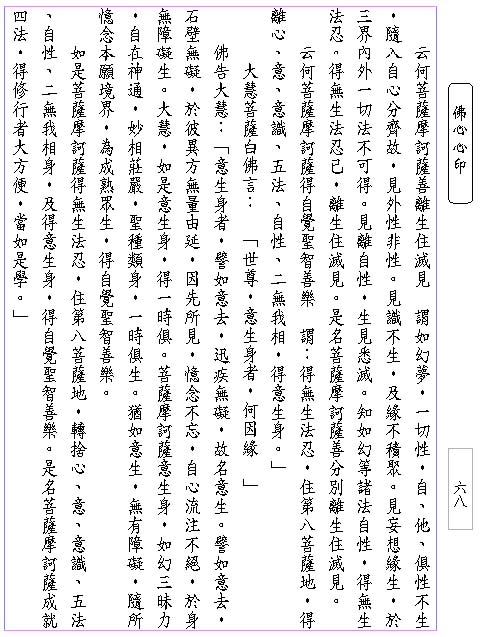 佛心心印
六八
云何菩薩摩訶薩善離生住滅見　謂如幻夢，一切性，自、他、俱性不生
，隨入自心分齊故，見外性非性。見識不生，及緣不積聚。見妄想緣生，於
三界內外一切法不可得。見離自性，生見悉滅。知如幻等諸法自性，得無生
法忍。得無生法忍已，離生住滅見。是名菩薩摩訶薩善分別離生住滅見。
云何菩薩摩訶薩得自覺聖智善樂　謂：得無生法忍，住第八菩薩地，得
離心、意、意識、五法、自性、二無我相，得意生身。」
大慧菩薩白佛言：「世尊，意生身者，何因緣　」
佛告大慧：「意生身者，譬如意去，迅疾無礙，故名意生。譬如意去，
石壁無礙，於彼異方無量由延，因先所見，憶念不忘，自心流注不絕，於身
無障礙生。大慧，如是意生身，得一時俱。菩薩摩訶薩意生身，如幻三昧力
，自在神通，妙相莊嚴，聖種類身，一時俱生。猶如意生，無有障礙，隨所
憶念本願境界，為成熟眾生，得自覺聖智善樂。
如是菩薩摩訶薩得無生法忍，住第八菩薩地，轉捨心、意、意識、五法
、自性、二無我相身，及得意生身，得自覺聖智善樂。是名菩薩摩訶薩成就
四法，得修行者大方便，當如是學。」